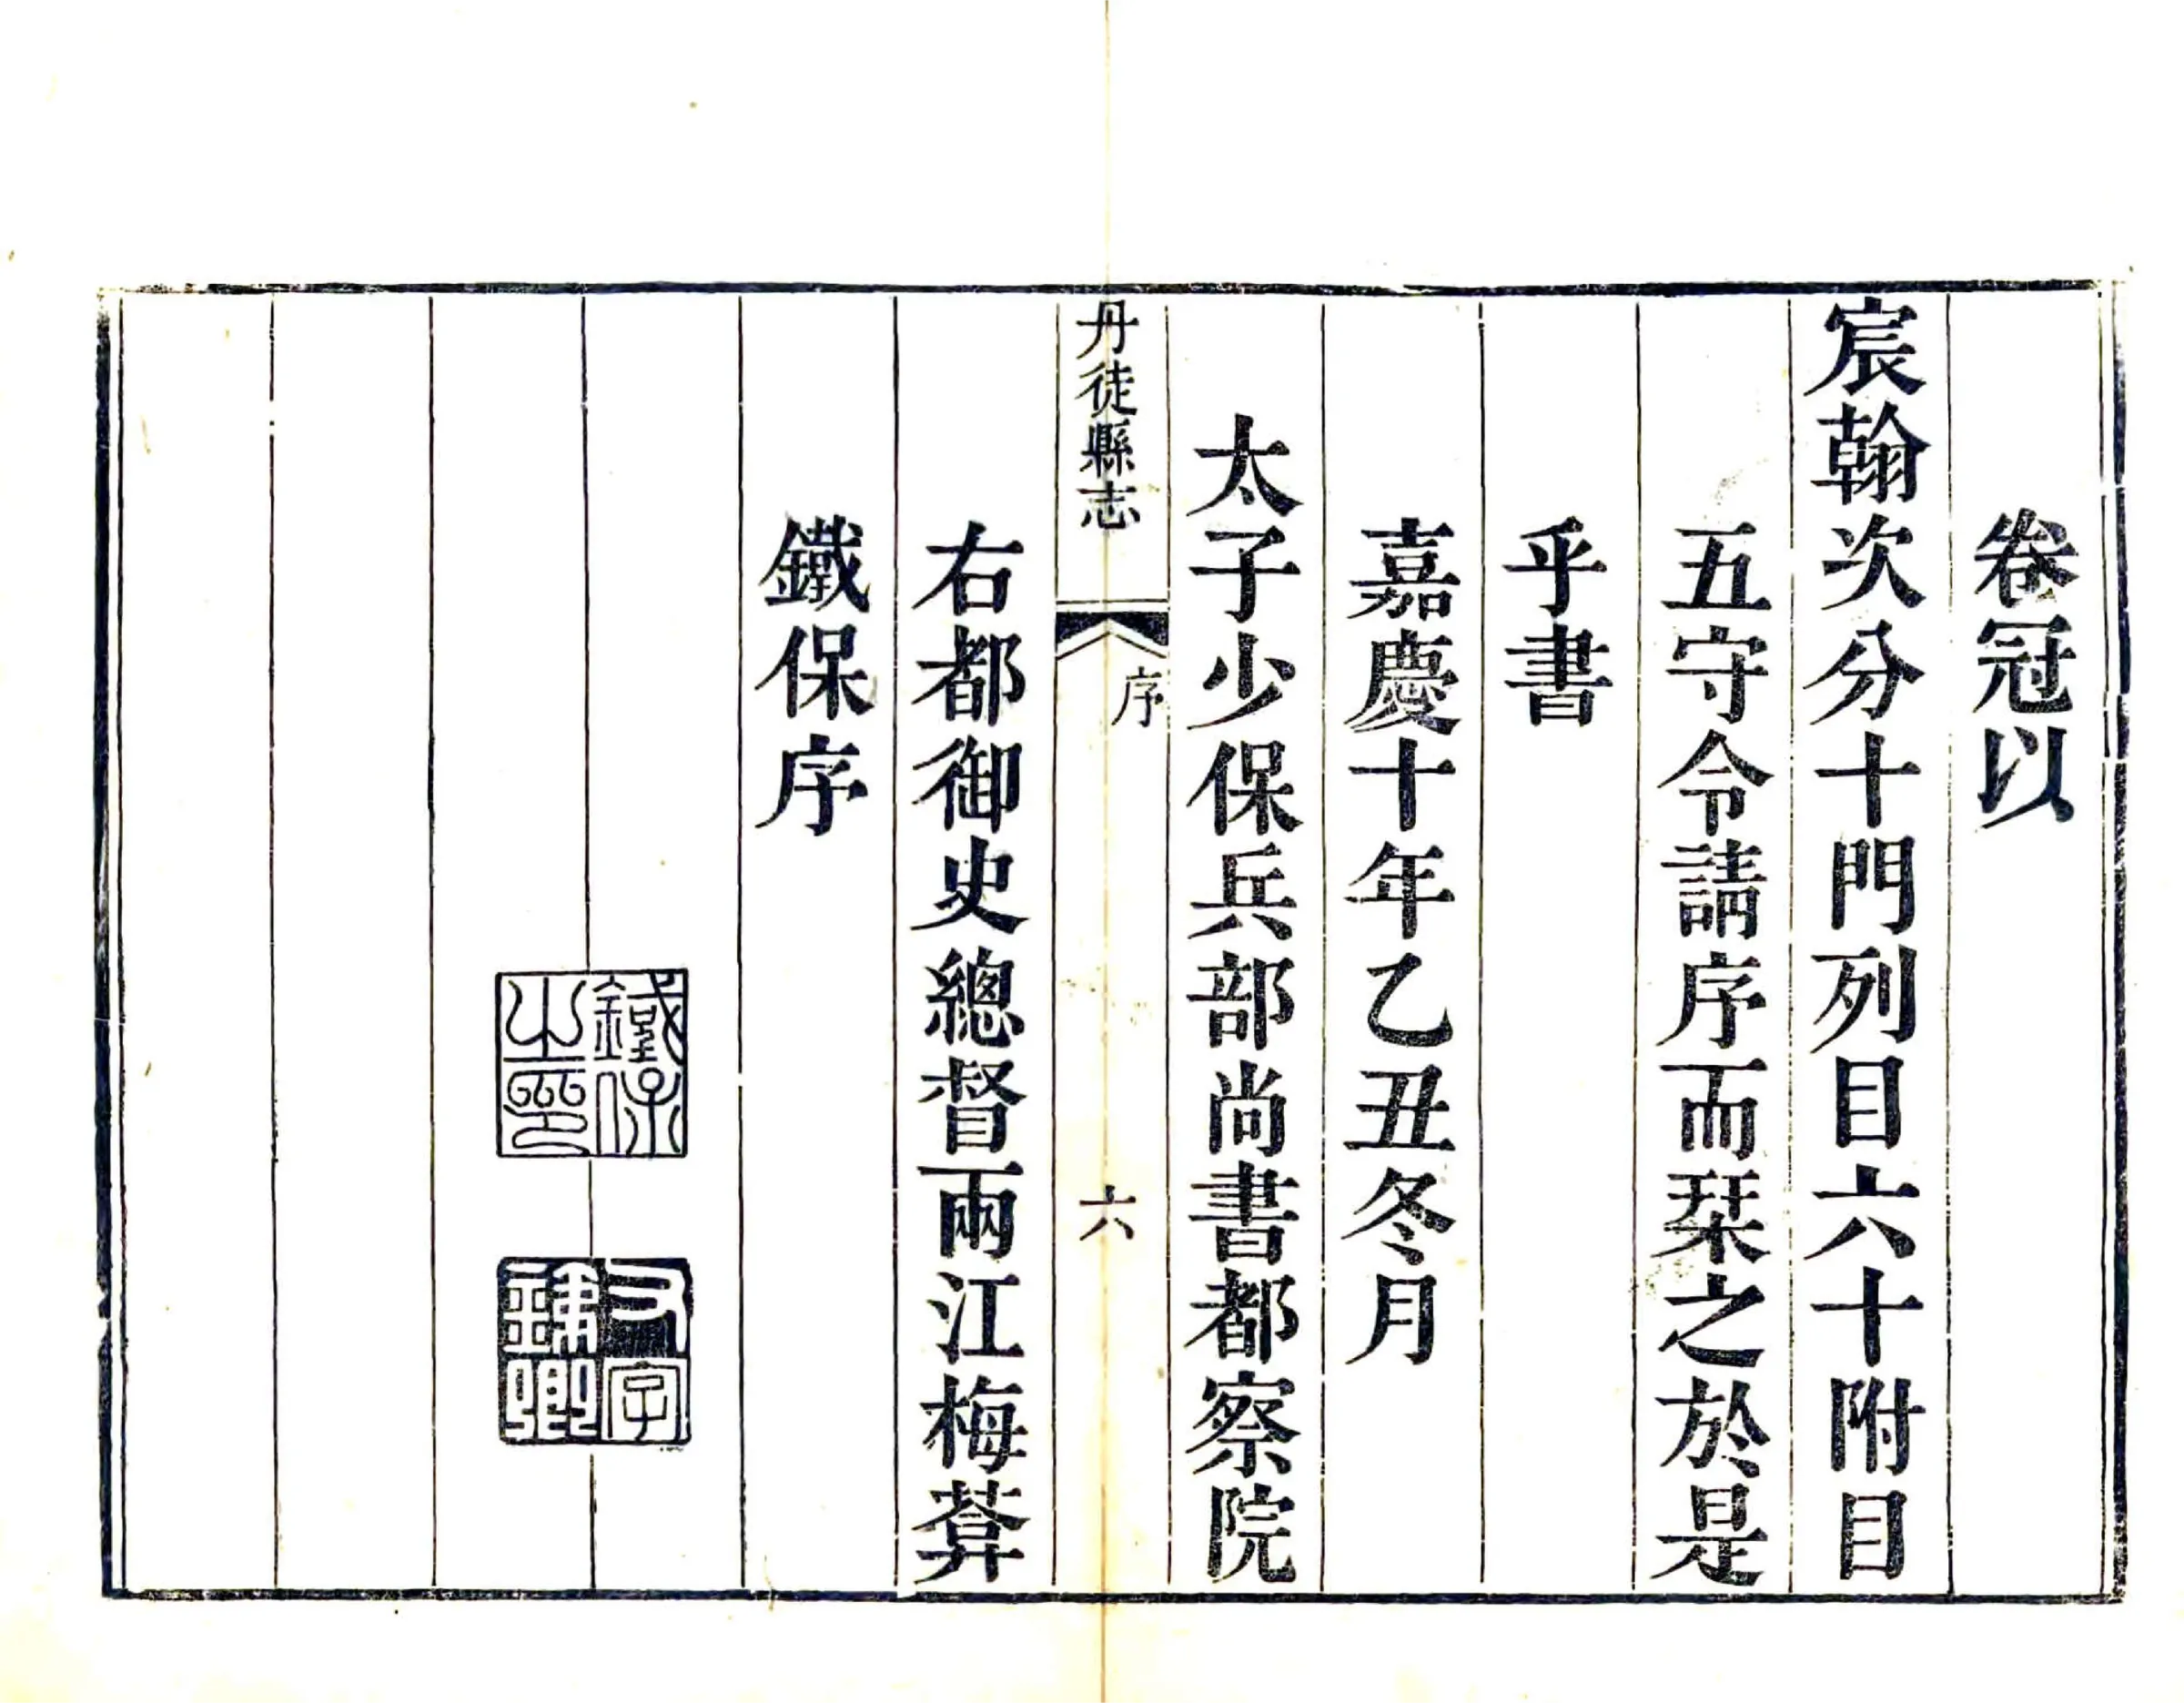 卷冠以
宸翰次分十門列目六十附目
五守令請序而栞之於是
乎書
嘉慶十年乙丑冬月
太子少保兵部尚書都察院
丹徒縣志
序
六
右都御史總督兩江梅葊
鐵保序
鐵保之印
又字銕卿